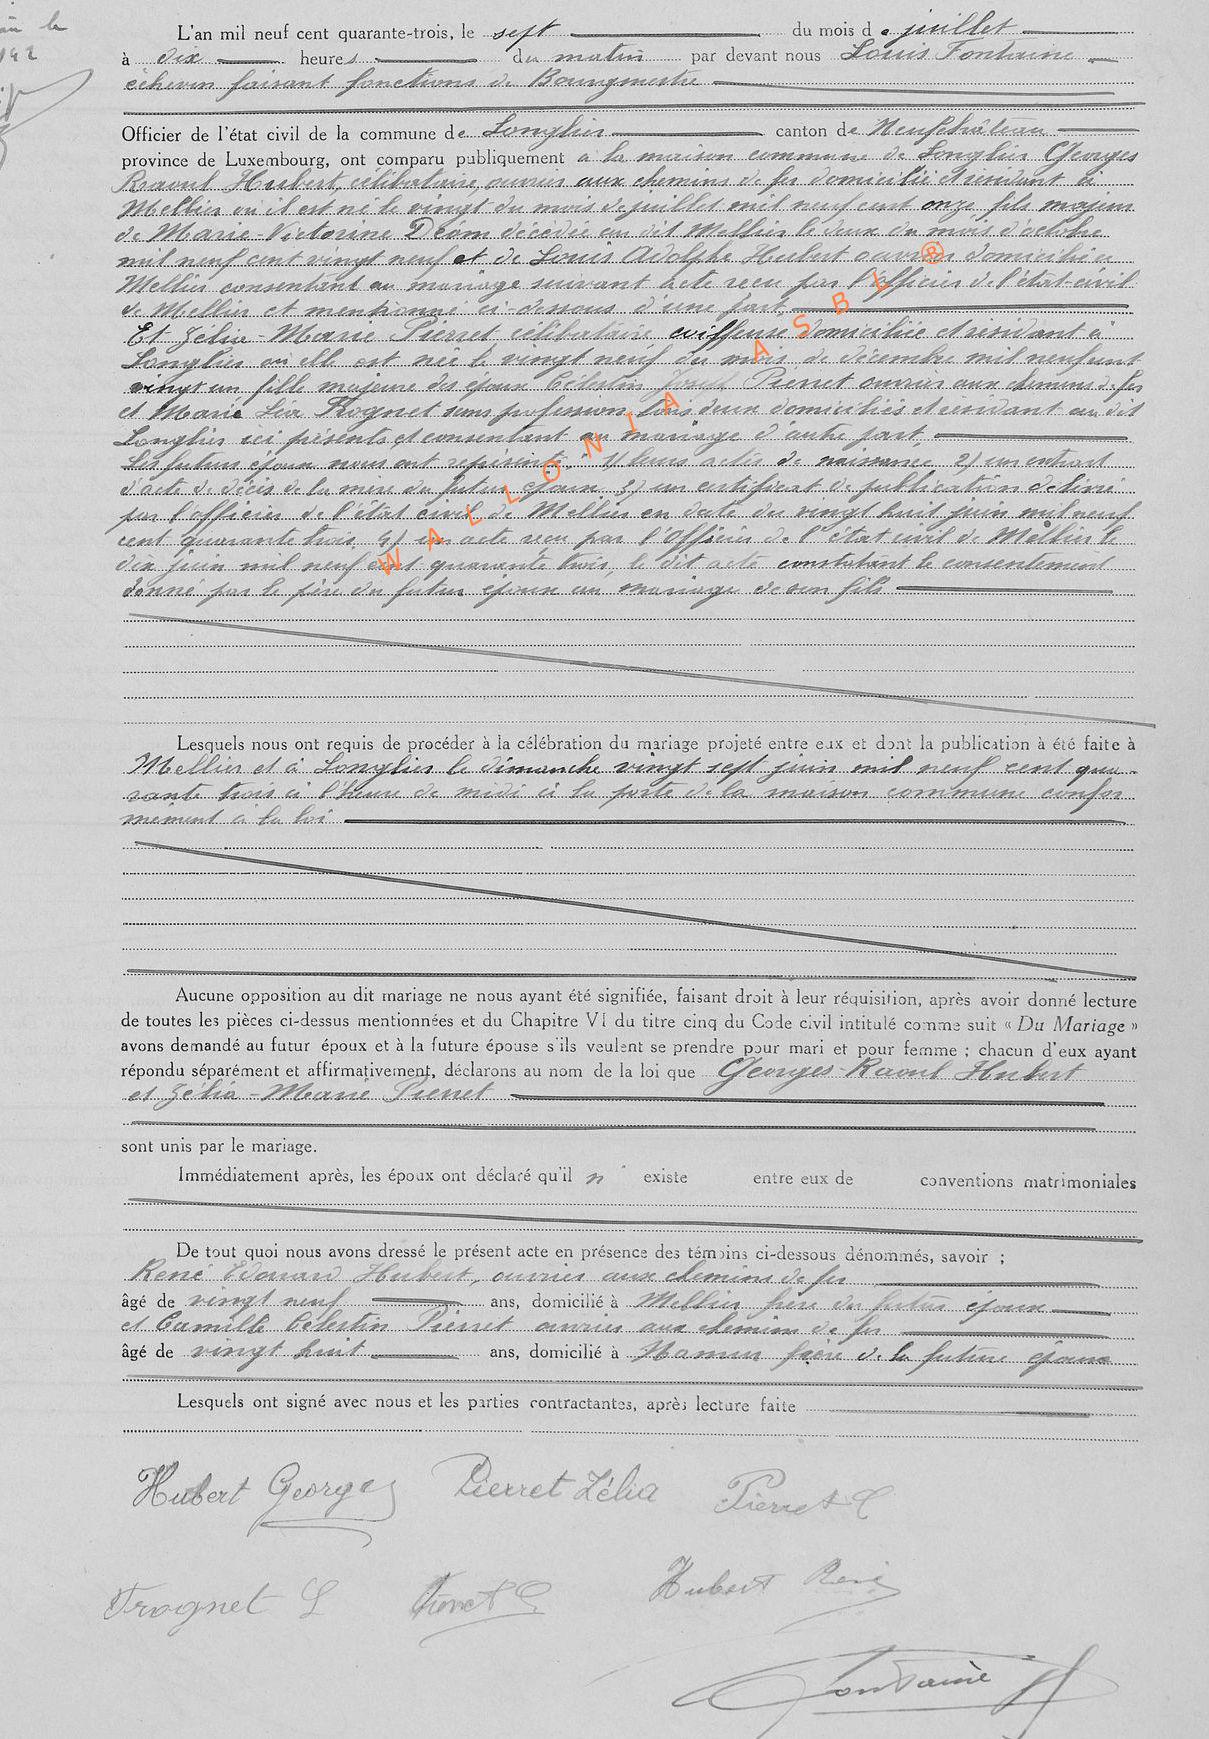 L'an mil neuf cent quarante-trois, le sept du mois de juillet
à dix heures du matin par devant nous Louis Fontaine
échevin faisant fonctions de Bourgmestre
Officier de l'état civil de la commune de Longlier canton de Neufchâteau
province de Luxembourg, ont comparu publiquement à la maison commune de Longlier Georges
Raoul Hubert, célibataire, ouvrier aux chemins de fer domicilié et résidant à
Mellier où il est né le vingt du mois de juillet mil neuf cent onze, fils majeur
de Marie-Victorine Déom décédée au dit Mellier le deux du mois d'octobre
mil neuf cent vingt neuf et de Louis Adolphe Hubert ouvrier domicilié à
Mellier consentant au mariage suivant acte reçu par l'officier de l'état-civil
de Mellier et mentionné ci-dessous d'une part,
Et Zélia-Marie Pierret célibataire, coiffeuse domiciliée et résidant à
Longlier où elle est née le vingt neuf du mois de décembre mil neuf cent
vingt un fille majeure des époux Célestin Joseph Pierret ouvrier aux chemins de fer
et Marie Trognet sans profession, tous deux domiciliés et résidant au dit
Longlier ici présents et consentant au mariage d'autre part,
Les futurs époux nous ont représenté : 1) leurs actes de naissance 2) un extrait
d'acte de décès de la mère du futur époux 3) un certificat de publication délivré
par l'officier de l'état civil de Mellier en date du vingt huit juin mil neuf
cent quarante trois 4) un acte reçu par l'Officier de l'état civil de Mellier le
dix juin mil neuf cent quarante trois, le dit acte constatant le consentement
donné par le père du futur époux au mariage de son fils
WALLONIA ASBL ®
Lesquels nous ont requis de procéder à la célébration du mariage projeté entre eux et dont la publication à été faite à
Mellier et à Longlier le dimanche vingt sept juin mil neuf cent qua-
rante trois à l'heure de midi à la porte de la maison commune confor
mément à la loi
Aucune opposition au dit mariage ne nous ayant été signifiée, faisant droit à leur réquisition, après avoir donné lecture
de toutes les pièces ci-dessus mentionnées et du Chapitre VI du titre cinq du Code civil intitulé comme suit « Du Mariage »
avons demandé au futur époux et à la future épouse s'ils veulent se prendre pour mari et pour femme ; chacun d'eux ayant
répondu séparément et affirmativement, déclarons au nom de la loi que Georges-Raoul Hubert
et Zélia-Marie Pierret
sont unis par le mariage.
Immédiatement après, les époux ont déclaré qu'il n' existe entre eux de conventions matrimoniales
De tout quoi nous avons dressé le présent acte en présence des témoins ci-dessous dénommés, savoir ;
René Edouard Hubert, ouvrier aux chemins de fer
âgé de vingt neuf ans, domicilié à Mellier frère du futur époux
et Camille Célestin Pierret ouvrier aux chemins de fer
âgé de vingt huit ans, domicilié à Namur frère de la future épouse
Lesquels ont signé avec nous et les parties contractantes, après lecture faite
Hubert Georges Pierret Zélia Pierret C
Trognet L Pierret C Hubert René
Fontaine